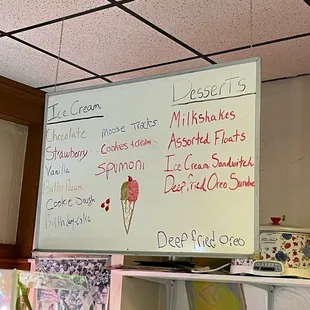 Ice Cream
Chocolate
Strawberry
Vanilla
Butter Pecan
Cookie Dough
Birthday Cake
Moose Tracks
Cookies & cream
Spumoni
Desserts
Milkshakes
Assorted Floats
Ice Cream Sandwitch
Deep fried Oreo Sundae
Deep fried Oreo